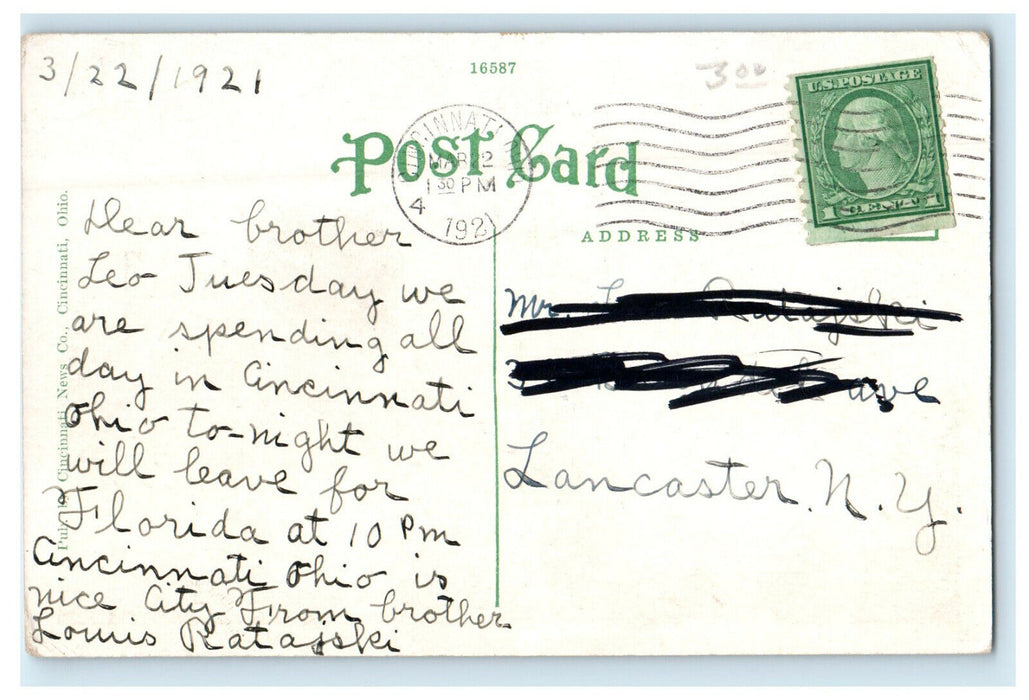 3/22/1921
16587
3 00
U.S. POSTAGE
1 CENT 1
CINCINNATI
MAR 22
1 30 PM
4
1921
Post Card
ADDRESS
Pub. by Cincinnati News Co., Cincinnati, Ohio.
Dear brother
Leo Tuesday we
are spending all
day in Cincinnati
Ohio to-night we
will leave for
Florida at 10 Pm
Cincinnati Ohio is
nice City From brother
Louis Ratajski
Mr. Ratajski
ave
Lancaster. N. Y.